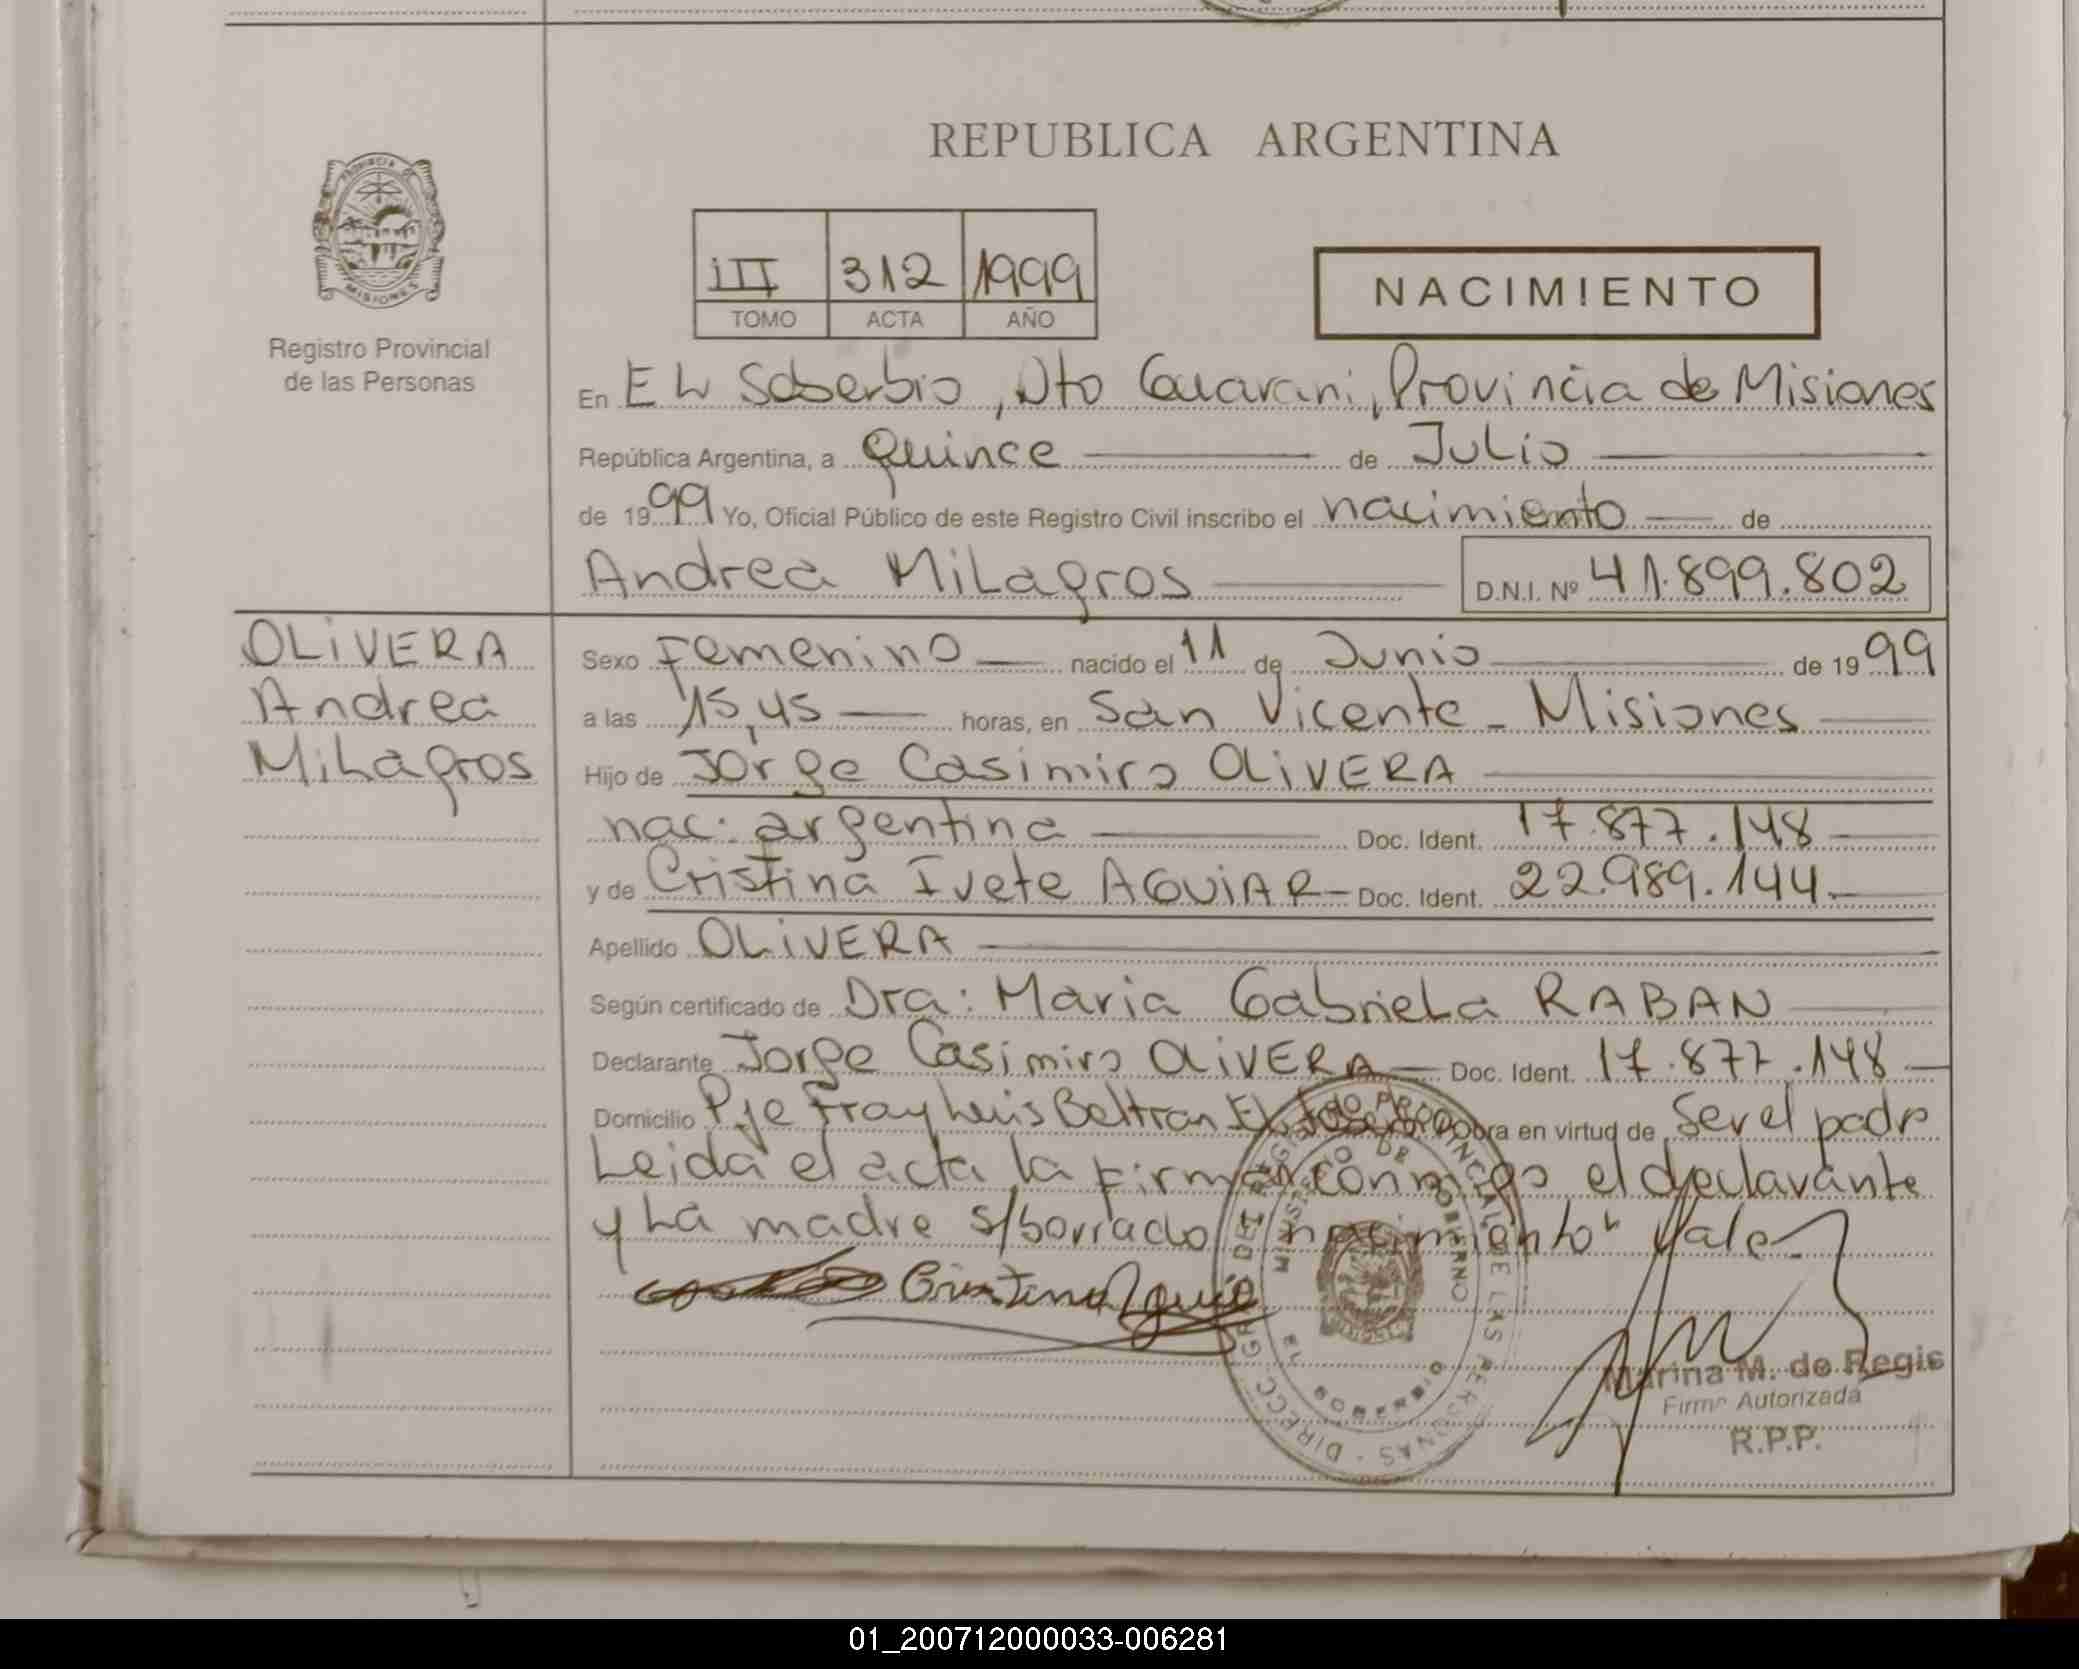 REPUBLICA ARGENTINA
PROVINCIA DE
MISIONES
Registro Provincial
de las Personas
III 312 1999
TOMO ACTA AÑO
NACIMIENTO
En EL Soberbio, Dto Guarani, Provincia de Misiones
República Argentina, a Quince de Julio
de 1999 Yo, Oficial Público de este Registro Civil inscribo el nacimiento de
Andrea Milagros D.N.I. Nº 41.899.802
OLIVERA
Andrea
Milagros
Sexo Femenino nacido el 11 de Junio de 1999
a las 15,45 horas, en San Vicente - Misiones
Hijo de Jorge Casimiro OLIVERA
nac: argentina Doc. Ident. 17.877.148
y de Cristina Ivete AGUIAR Doc. Ident. 22.989.144
Apellido OLIVERA
Según certificado de Dra: Maria Gabriela RABAN
Declarante Jorge Casimiro OLIVERA Doc. Ident. 17.877.148
Domicilio Pje Fray Luis Beltran EL obra en virtud de Ser el padre
Leida el acta la firman conmigo el declarante
y La madre s/borrado "nacimiento" Vale
Cristina Aguia
DIRECC. GRAL. DEL REGISTRO PROVINCIAL DE LAS PERSONAS
MINISTERIO DE GOBIERNO
EL SOBERBIO
Marina M. de Regis
Firma Autorizada
R.P.P.
01_200712000033-006281